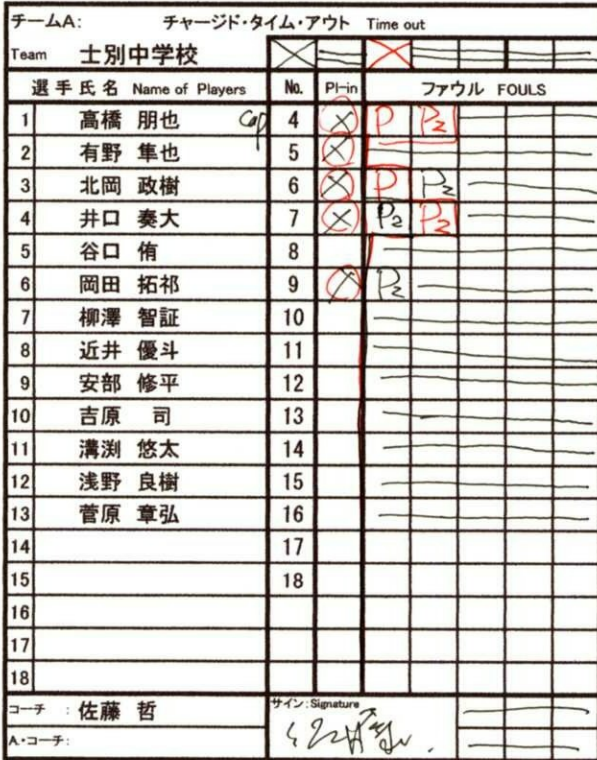 チームA: チャージド・タイム・アウト Time out
Team 士別中学校
選手氏名 Name of Players No. Pl-in ファウル FOULS
1 高橋 朋也 Cap 4 X P P2
2 有野 隼也 5 X
3 北岡 政樹 6 X P P2
4 井口 奏大 7 X P2 P2
5 谷口 侑 8
6 岡田 拓祁 9 X P2
7 柳澤 智証 10
8 近井 優斗 11
9 安部 修平 12
10 吉原 司 13
11 溝渕 悠太 14
12 浅野 良樹 15
13 菅原 章弘 16
14 17
15 18
16
17
18
コーチ : 佐藤 哲 サイン:Signature
A・コーチ: